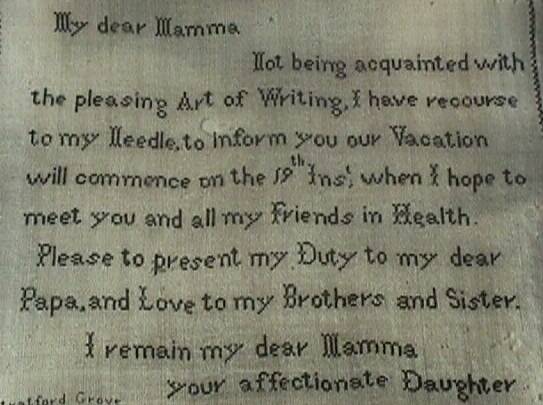 My dear Mamma
Not being acquainted with
the pleasing Art of Writing, I have recourse
to my Needle, to inform you our Vacation
will commence on the 19th Inst, when I hope to
meet you and all my Friends in Health.
Please to present my Duty to my dear
Papa, and Love to my Brothers and Sister.
I remain my dear Mamma
your affectionate Daughter
Grove